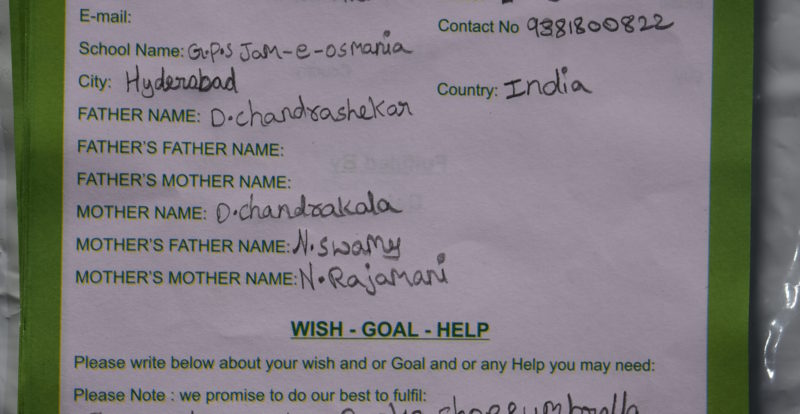 E-mail:
Contact No 9381800822
School Name: G.P.S Jam-e-osmania
City: Hyderabad
Country: India
FATHER NAME: D.chandrashekar
FATHER'S FATHER NAME:
FATHER'S MOTHER NAME:
MOTHER NAME: D.chandrakala
MOTHER'S FATHER NAME: N.swamy
MOTHER'S MOTHER NAME: N.Rajamani
WISH - GOAL - HELP
Please write below about your wish and or Goal and or any Help you may need:
Please Note : we promise to do our best to fulfil: